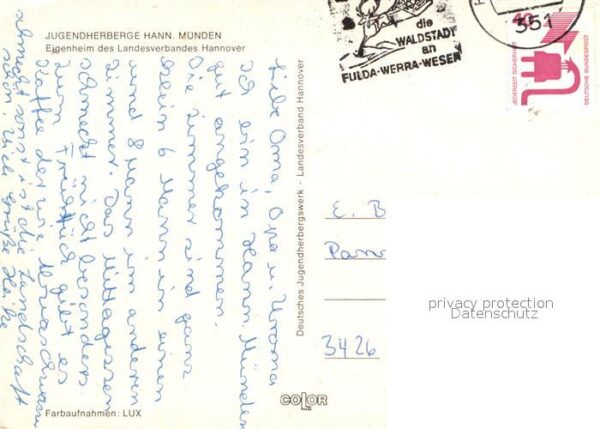 JUGENDHERBERGE HANN. MÜNDEN
Eigenheim des Landesverbandes Hannover
die
WALDSTADT
an
FULDA-WERRA-WESER
351
40
JEDERZEIT SICHERHEIT
DEUTSCHE BUNDESPOST
Liebe Oma, Opa u. Uroma
Ich bin in Hann. Münden
gut angekommen.
Die Zimmer sind ganz
klein 6 Mann in einem
und 8 Mann im anderen
Zimmer. Das Mittagessen
schmeckt nicht besonders
zum Frühstück gibt es
Kaffee der wie
schmeckt sonst ist die Landschaft
schön. Viele Grüße
Deutsches Jugendherbergswerk · Landesverband Hannover
E. B
3426
privacy protection
Datenschutz
Farbaufnahmen: LUX
COLOR